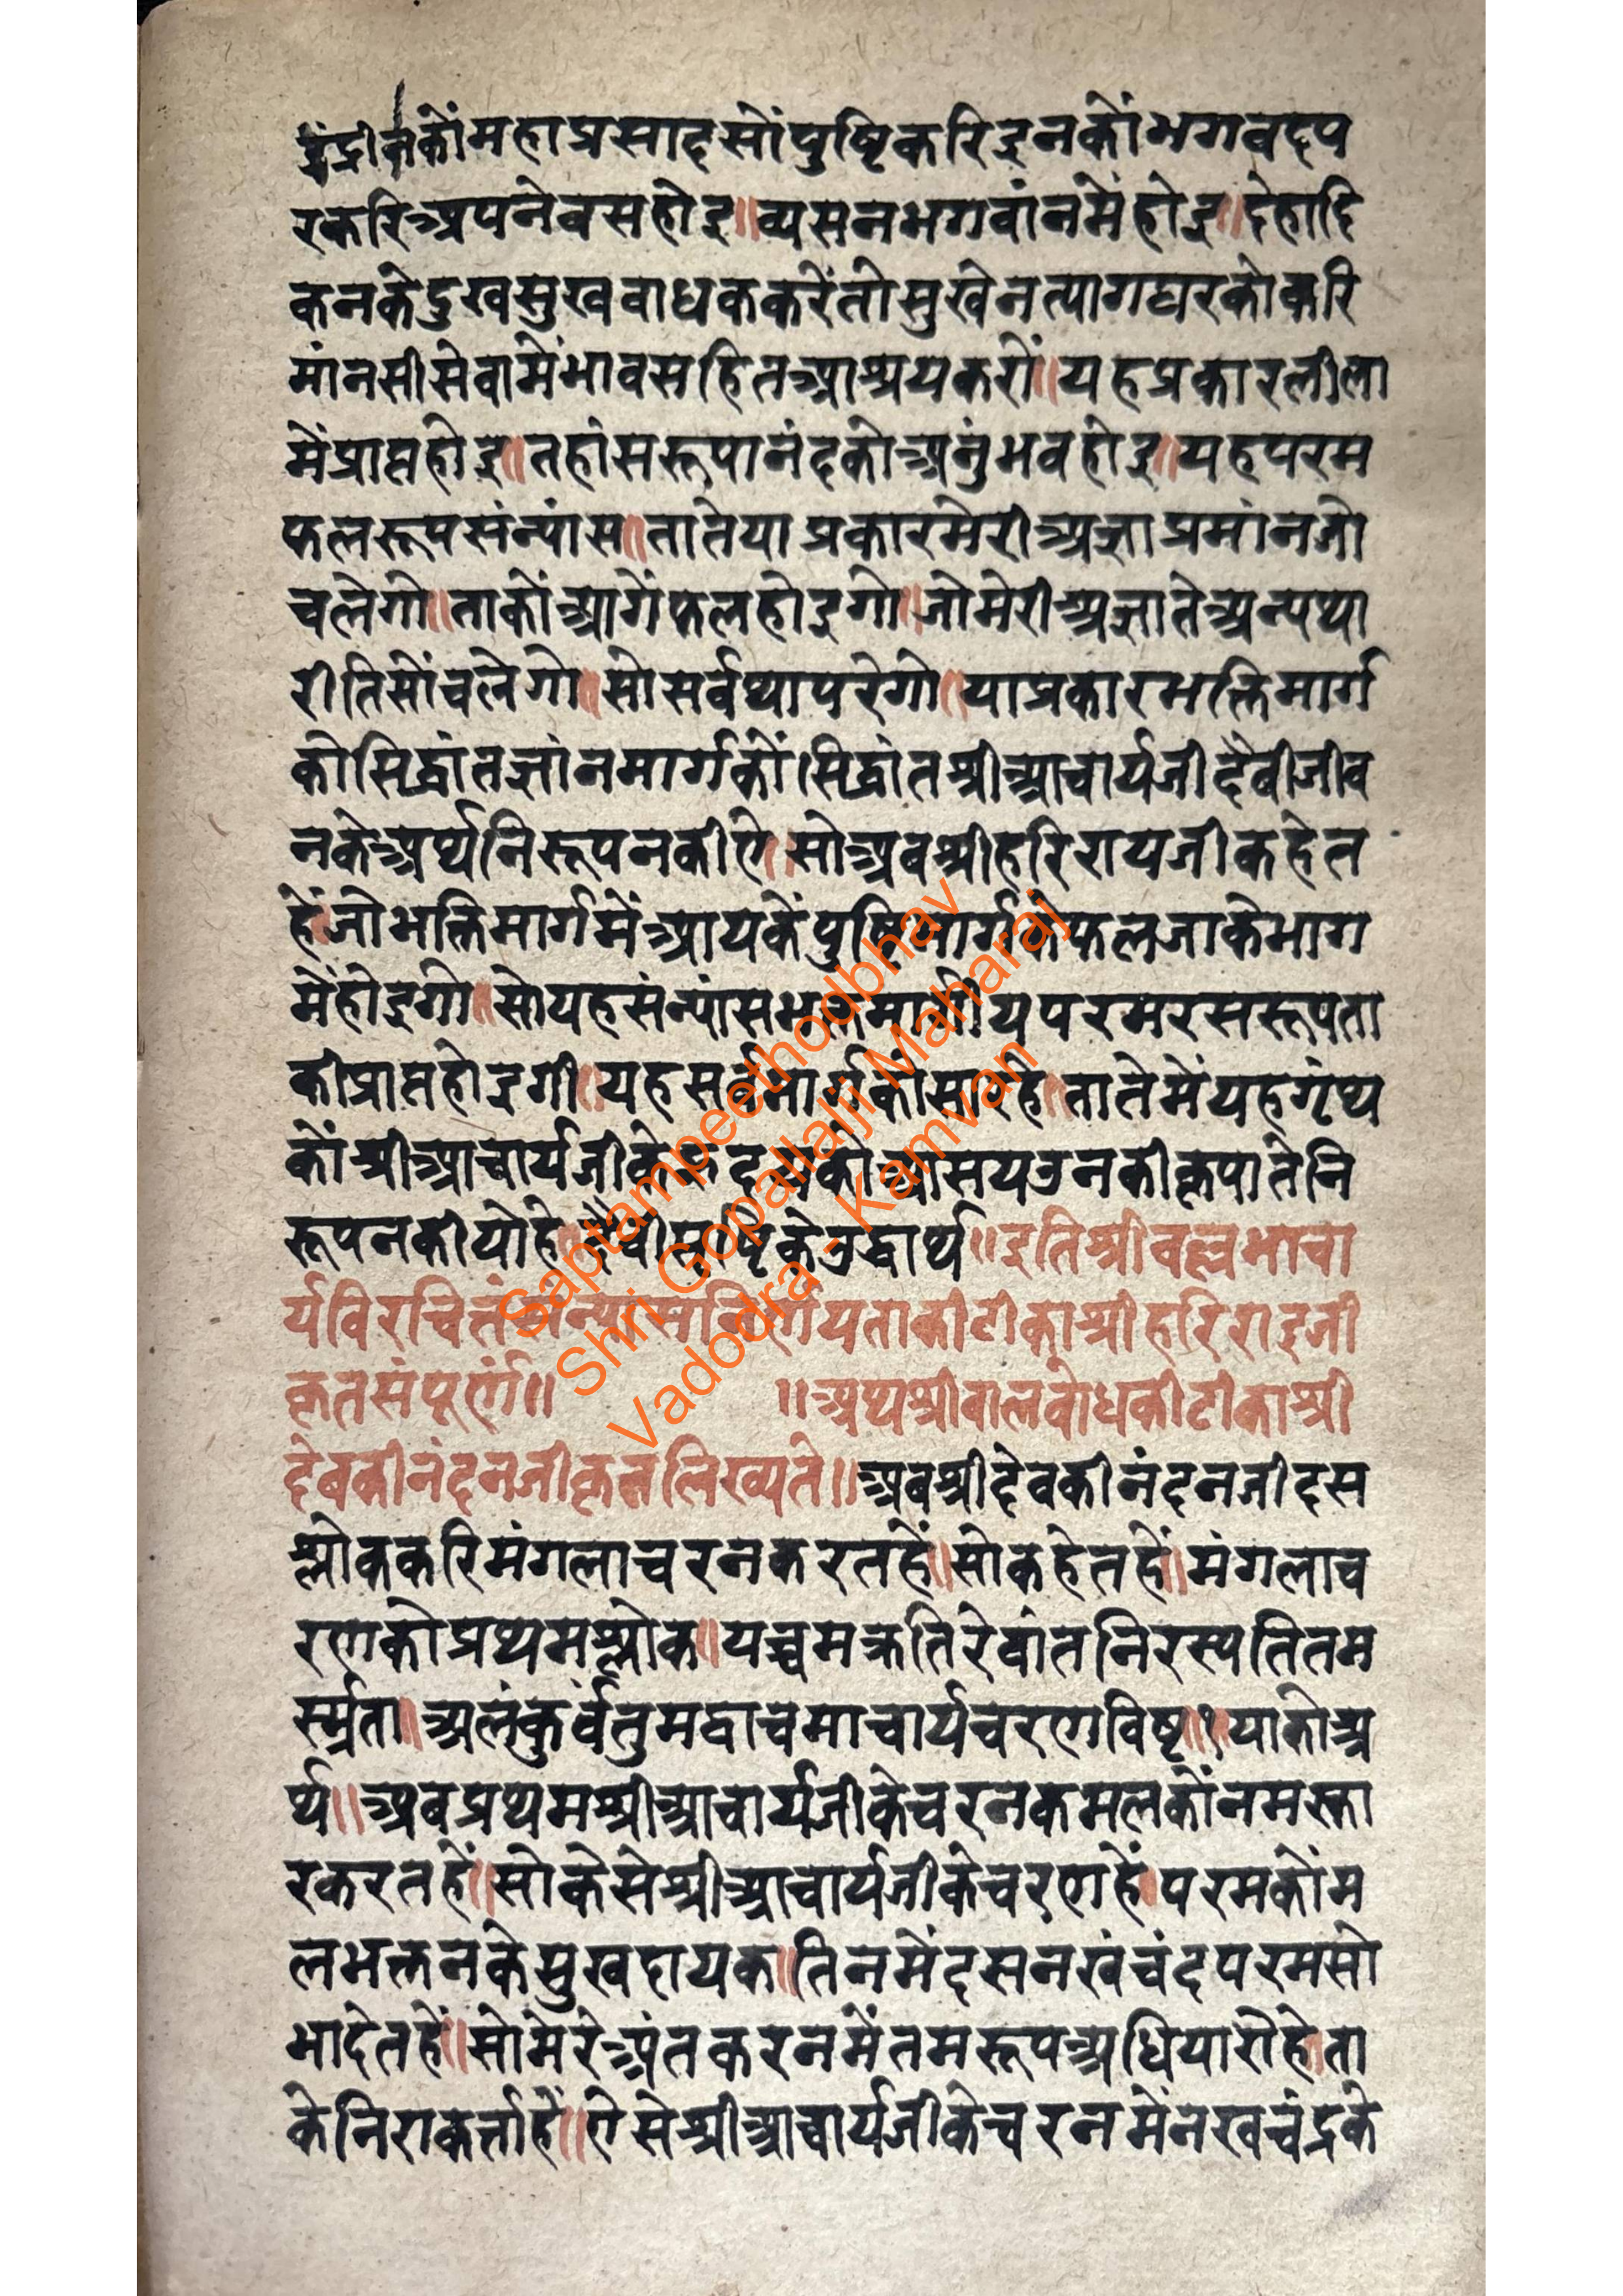 इंद्रीनकों महाप्रसादसों पुष्टि करि इनकों भगवदप
र करि अपने बस होइ॥ व्यसन भगवांनमें होइ॥ देहादि
कनके दुख सुख बाधक करें तो सुखेन त्याग घरको करि
मांनसी सेवामें भाव सहित आश्रय करों॥ यह प्रकार लीला
में प्राप्त होइ॥ तहां सरूपानंदको अनुंभव होइ॥ यह परम
फलरूप संन्यांस॥ ताते या प्रकार मेरी अज्ञा प्रमांन जो
चलेगो॥ ताकों आगें फल होइगो॥ जो मेरी अज्ञाते अन्यथा
रीतिसों चलेगो॥ सो सर्वथा परेगो॥ या प्रकार भक्तिमार्ग
को सिद्धांत ज्ञांनमार्गकों। सिद्धांत श्रीआचार्यजी दैवी जीव
नके अर्थ निरूपन कीऐ॥ सो अब श्रीहरिरायजी कहेत
हें॥ जो भक्तिमार्गमें आयकें पुष्टिमार्गके फल जाके भाग
में होइगो॥ सो यह संन्यांस भक्तिमार्गीय परम रस रूपता
की प्राप्त होइगी॥ यह सर्वमार्गकों सार हे॥ ताते में यह गंृथ
कों श्रीआचार्यजीके हृदयको आसय उनकी कृपाते नि
रूपन कीयो हे॥ दैवी सृष्टिके उद्धार्थ॥ इति श्रीवल्लभाचा
र्य विरचितं संन्यांसनिर्णय ताकी टीका श्रीहरिराइजी
कृत संपूर्णं॥ ॥अथ श्रीबालबोधकी टीका श्री
देवकीनंदनजी कृत लिख्यते॥ अब श्रीदेवकीनंदनजी दस
श्लोक करि मंगलाचरन करत हें॥ सो कहेत हें॥ मंगलाच
रणको प्रथम श्लोक॥ यच्चमत्क्रतिरेवांतनिरस्यति तम
र्स्मृता॥ अलंकुर्वंतु मद्वाचमाचार्यचरणविष्टृ॥१॥ याको अ
र्थ॥ अब प्रथम श्रीआचार्यजीके चरनकमलकों नमस्का
र करत हें॥ सो केसे श्रीआचार्यजीके चरण हें॥ परम कोंम
ल भक्तनके सुखदायक॥ तिनमें दस नख चंद परम सो
भा देत हें॥ सो मेरे अंतकरनमें तमरूप अधियारो हे॥ ता
के निराकर्त्ता हें॥ ऐसे श्रीआचार्यजीके चरनमें नख चंद्रके
Saptampeethodbhav
Shri Gopallalji Maharaj
Vadodra - Kamvan